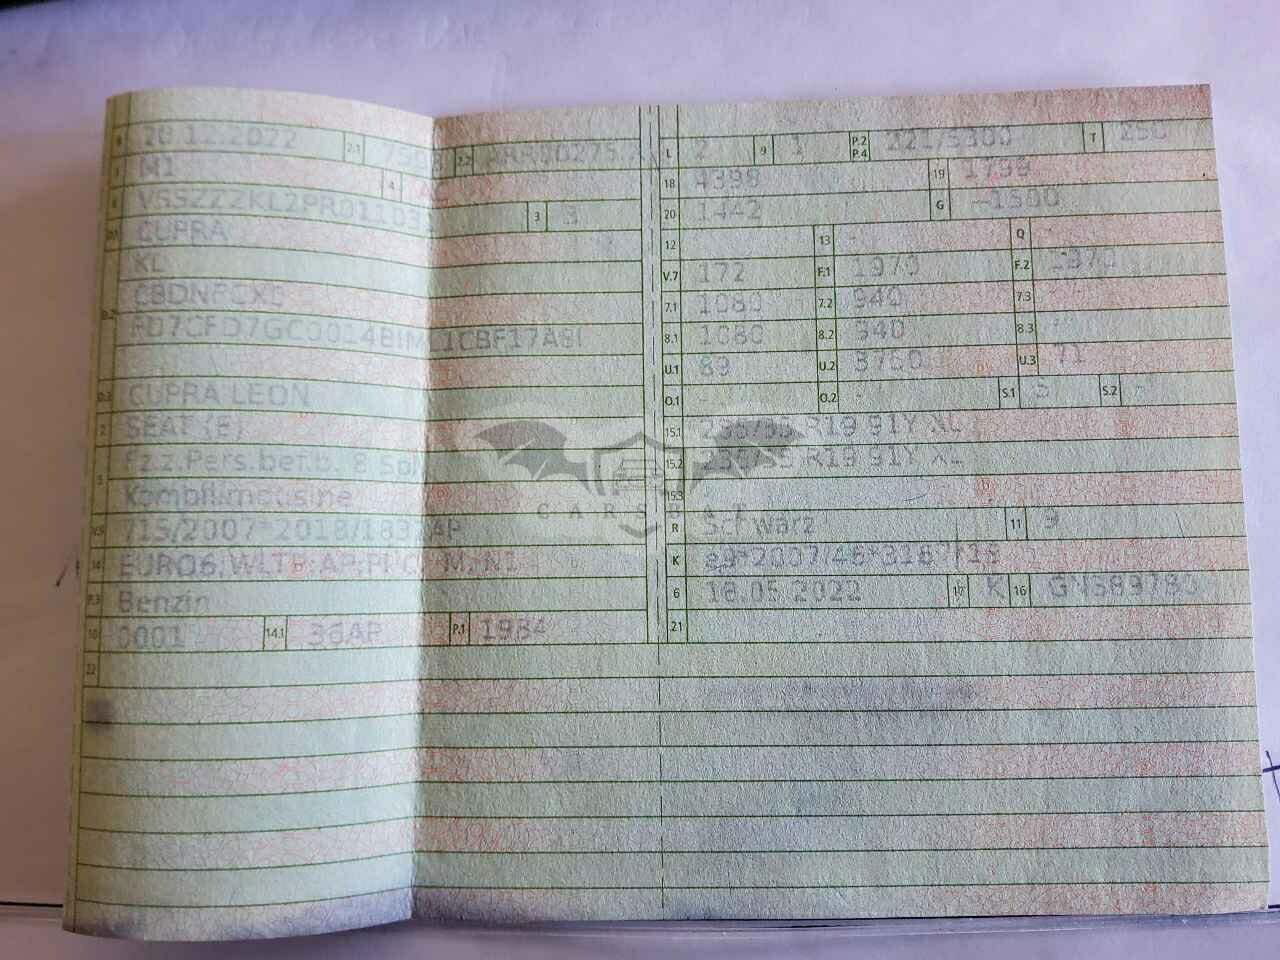 B 20.12.2022 2.1 2.2
J M1 4 AC
E 3 3
D.1 CUPRA
D.2 KL
CUPRA LEON
2 SEAT (E)
5 Fz.z.Pers.bef.b. 8
Kombilimousine
V.9 715/2007*2018/1832AP
14 EURO6;WLTP;AP;PI
P.3 Benzin
10 0001 14.1 36AP P.1 1984
22
L 2 9 1 P.2 P.4 221/5300 T 250
18 4398 19 1799
20 1442 G 1500
12 - 13 - Q -
V.7 172 F.1 1970 F.2 1970
7.1 1080 7.2 940 7.3 -
8.1 1080 8.2 940 8.3 -
U.1 89 U.2 3750 U.3 71
O.1 - O.2 - S.1 5 S.2 -
15.1 235/35 R19 91Y XL
15.2 235/35 R19 91Y XL
15.3 -
CARSBAT
R Schwarz 11 9
K
6 18.05.2022 17 K 16
21